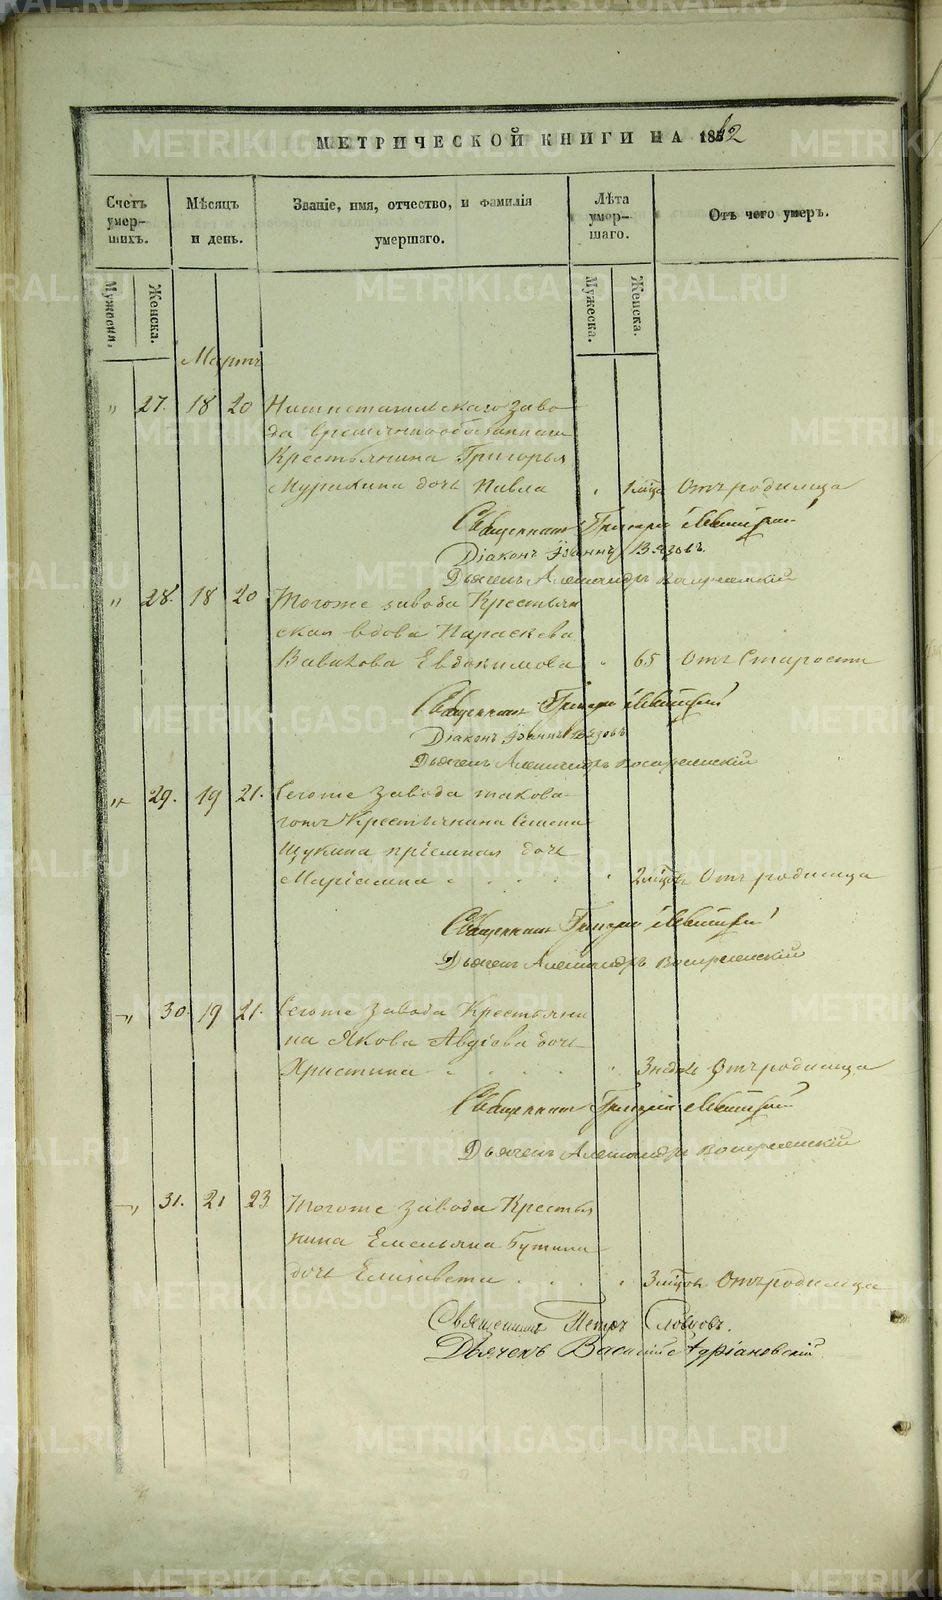 МЕТРИЧЕСКОЙ КНИГИ НА 1862
Счетъ умер-шихъ.
Мѣсяцъ и день.
Званіе, имя, отчество, и фамилія умершаго.
Лѣта умер-шаго.
Отъ чего умеръ.
Мужеска.
Женска.
Мужеска.
Женска.
Мартъ
" 27. 18 20 Нижнетагильскаго заво-
да временнообязаннаго
Крестьянина Григорья
дочь Павла " 1 мѣца Отъ родимца
Священникъ Григорій Левитскій
Діаконъ Іоаннъ Вязовъ.
Дьячекъ Александръ Воскресенскій
" 28. 18 20 Тогоже завода Крестьян
ская вдова Параскева
Евдокимова " 65 Отъ Старости
Священникъ Григорій Левитскій
Діаконъ Іоаннъ Вязовъ
Дьячекъ Александръ Воскресенскій
" 29. 19 21. Сегоже завода такова-
гожъ Крестьянина Семена
Щукина пріемная дочь
Маріамна " 2 мѣцов Отъ родимца
Священникъ Григорій Левитскій
Дьячекъ Александръ Воскресенскій
" 30. 19 21. Сегоже завода Крестьяни
на Якова Авдіева дочь
Христина " 3 недѣл Отъ родимца
Священникъ Григорій Левитскій
Дьячекъ Александръ Воскресенскій
" 31. 21 23 Тогоже завода Крестья
нина Емельяна Бутина
дочь Елисавета " 3 мѣцов Отъ родимца
Священникъ Петръ Словцовъ.
Дьячекъ Василій Адріановскій.
METRIKI.GASO-URAL.RU